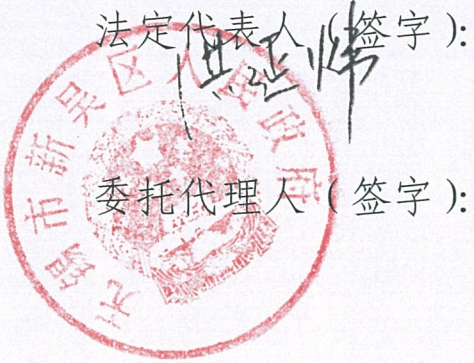 法定代表人（签字）：
洪延炜
委托代理人（签字）：
无锡市新吴区人民政府